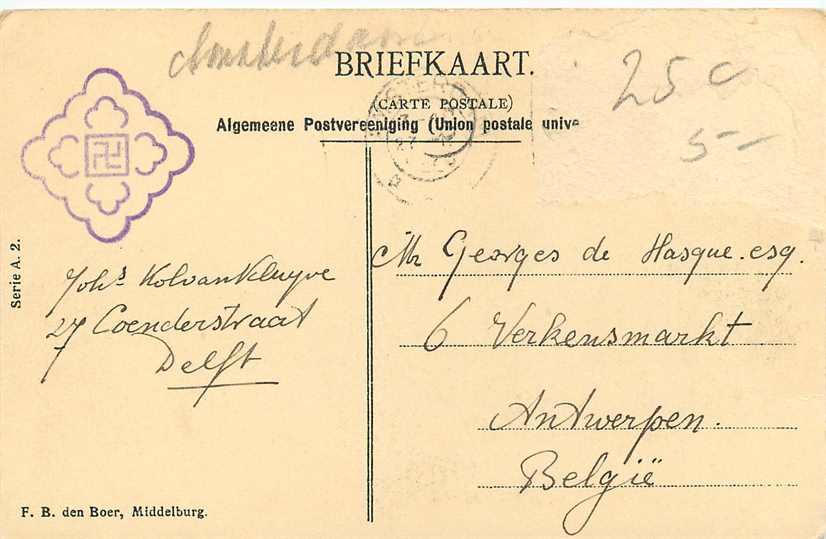 Amsterdam
BRIEFKAART.
(CARTE POSTALE)
Algemeene Postvereeniging (Union postale unive
25 c
5-
Serie A. 2.
Mr Georges de Hasque. esq.
6 Verkensmarkt
Antwerpen.
België
Johs
27 Coenderstraat
Delft
F. B. den Boer, Middelburg.